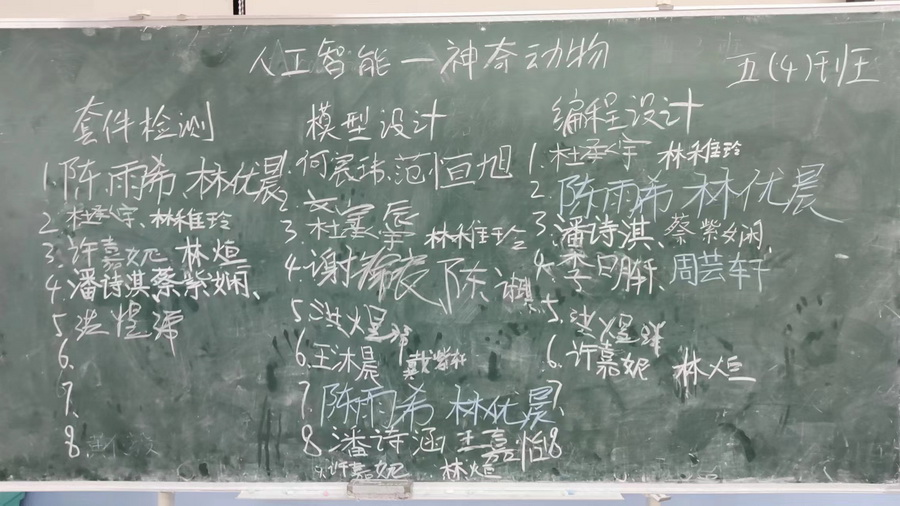 人工智能—神奇动物
五(4)班
套件检测
1.陈雨希 林优晨
2.杜承宇、林稚玲
3.许嘉妮 林烜
4.潘诗淇蔡紫娴、
5.洪煜
6.
7.
8
模型设计
何宸玮.范恒旭
2.
3.杜承宇 林稚玲
4.谢振宸、陈
5.洪煜
6.王沐晨 戴紫轩
7.陈雨希 林优晨
8.潘诗涵 王嘉怡
许嘉妮 林烜
编程设计
1.杜承宇 林稚玲
2.陈雨希 林优晨
3.潘诗淇、蔡紫娴
4.李明轩、周芸轩
5.洪煜
6.许嘉妮 林烜
7.
8